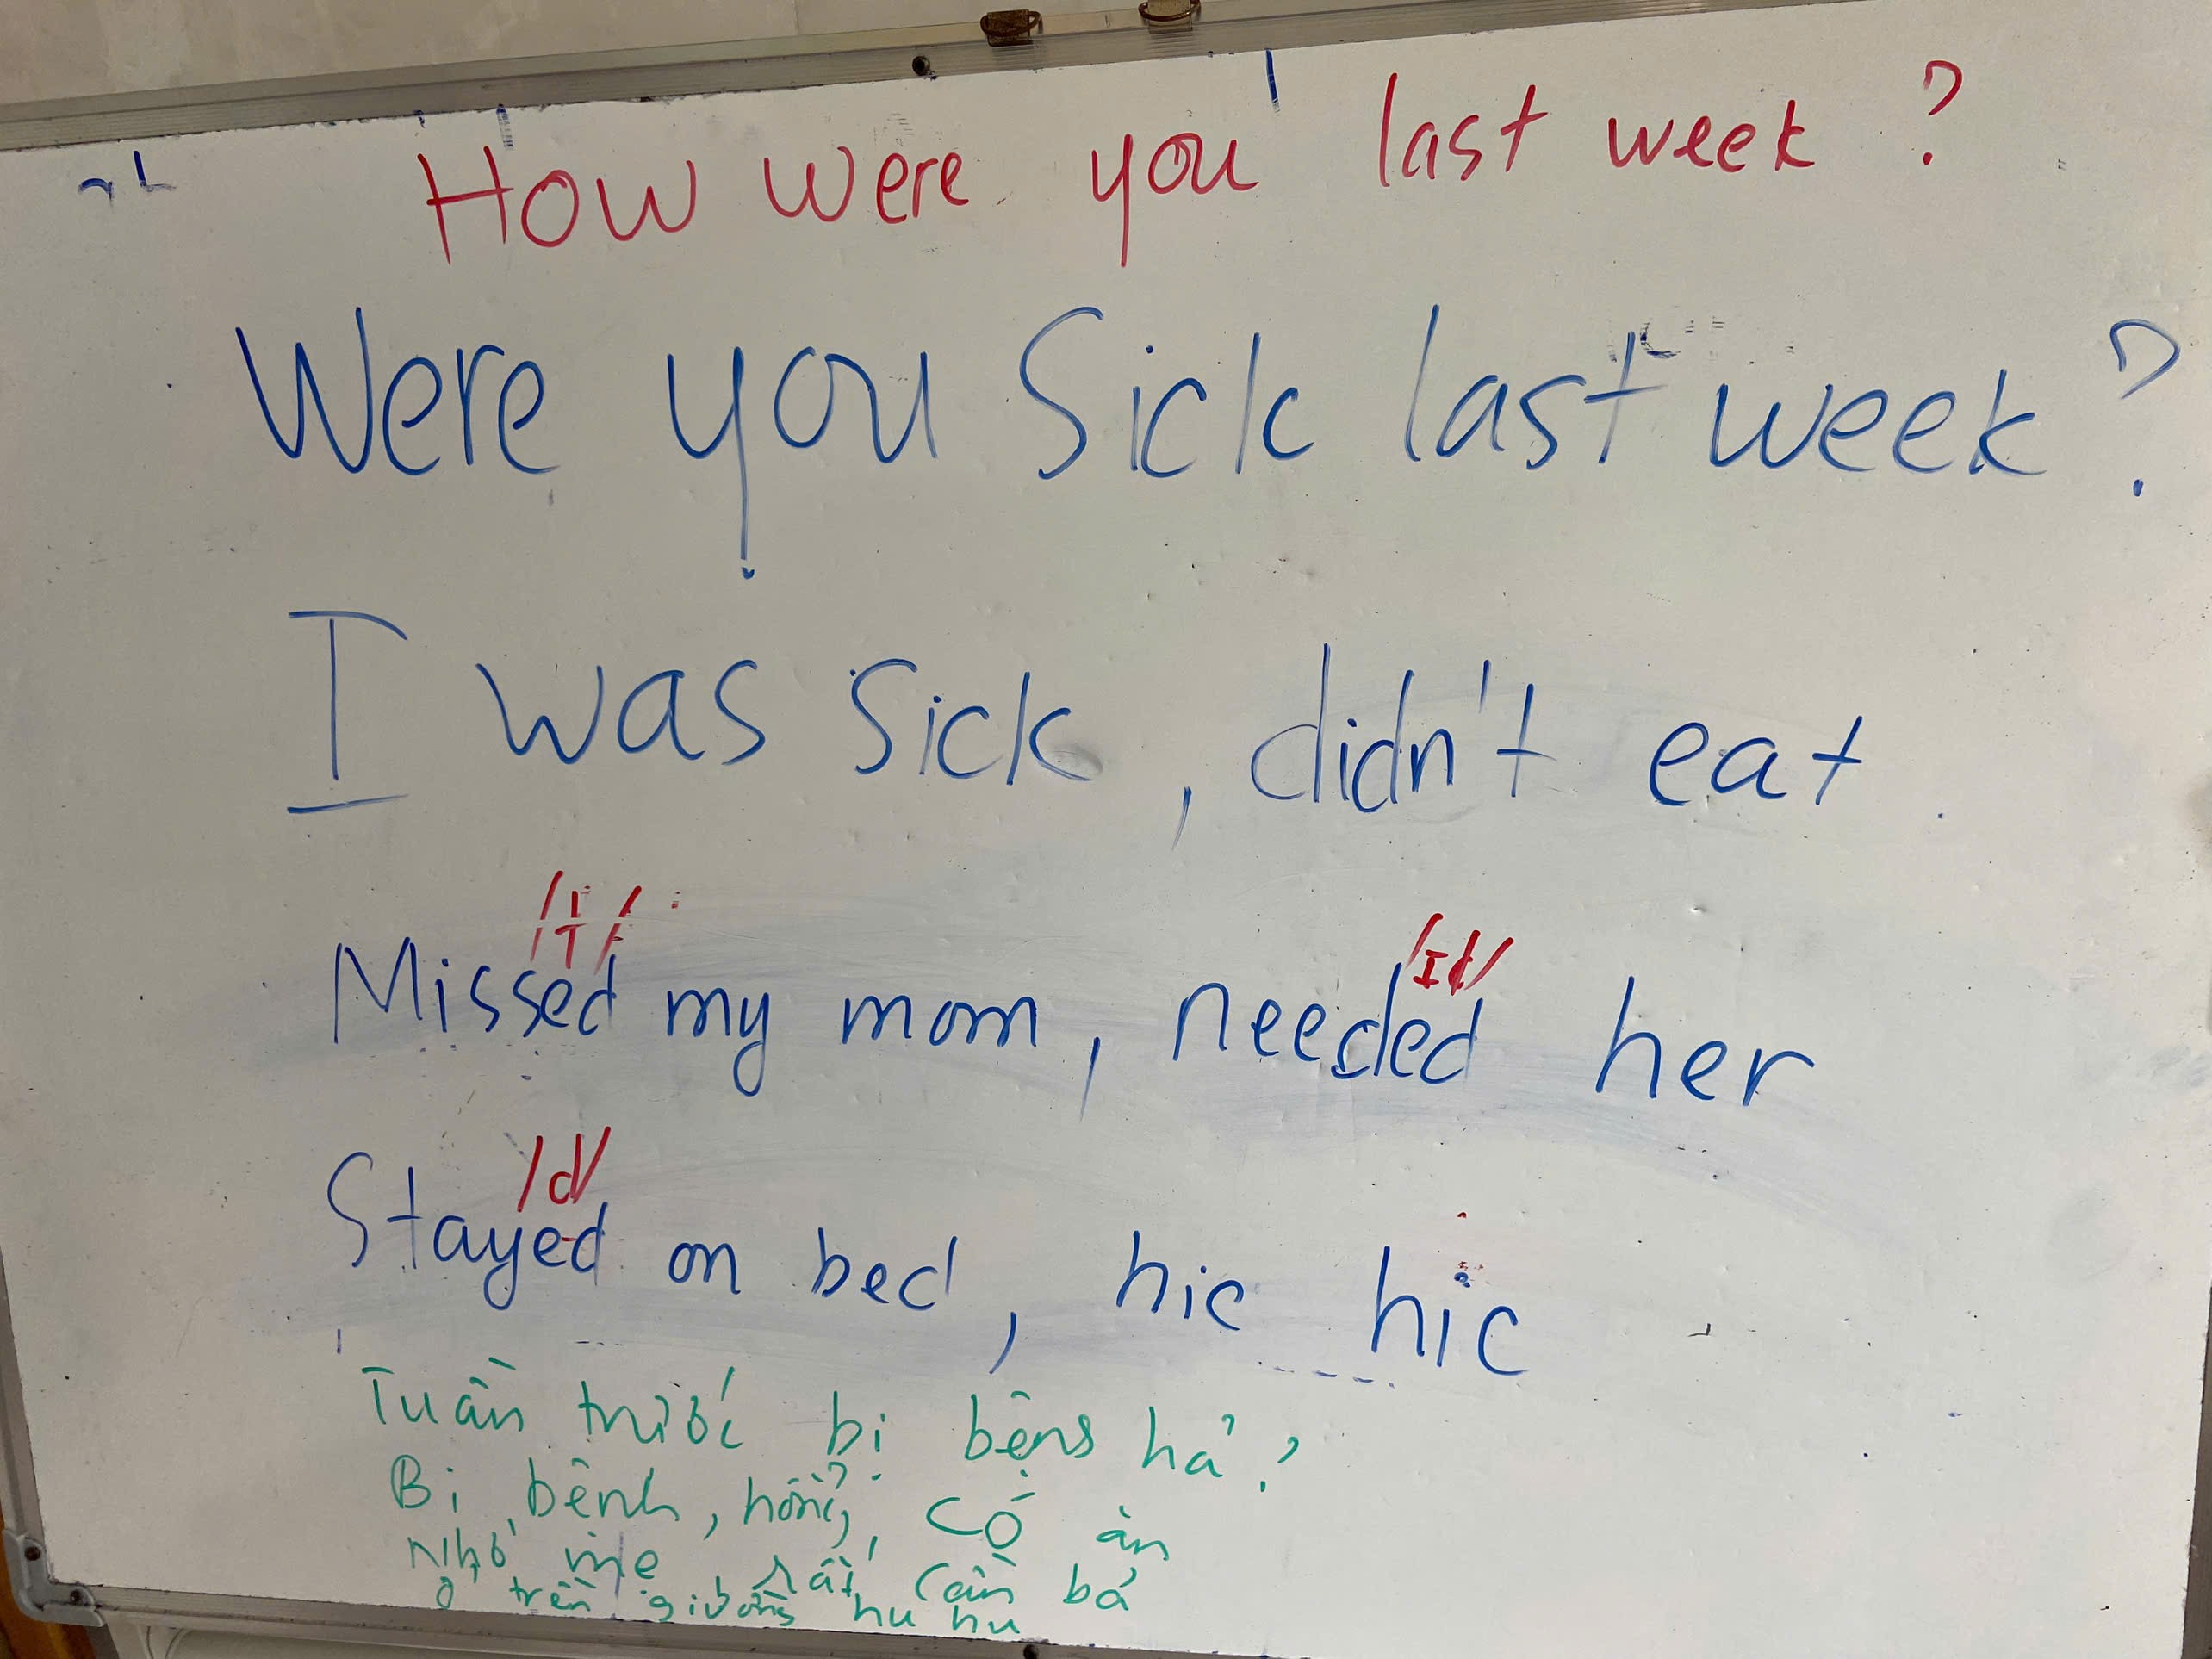 How were you last week ?
Were you Sick last week ?
I was sick , didn't eat .
/T/ /Id/
Missed my mom , needed her
/d/
Stayed on bed , hic hic
Tuần trước bị bệng hả ?
Bị bệnh , hổng có ăn
Nhớ mẹ rất cần bả
ở trên giường hu hu